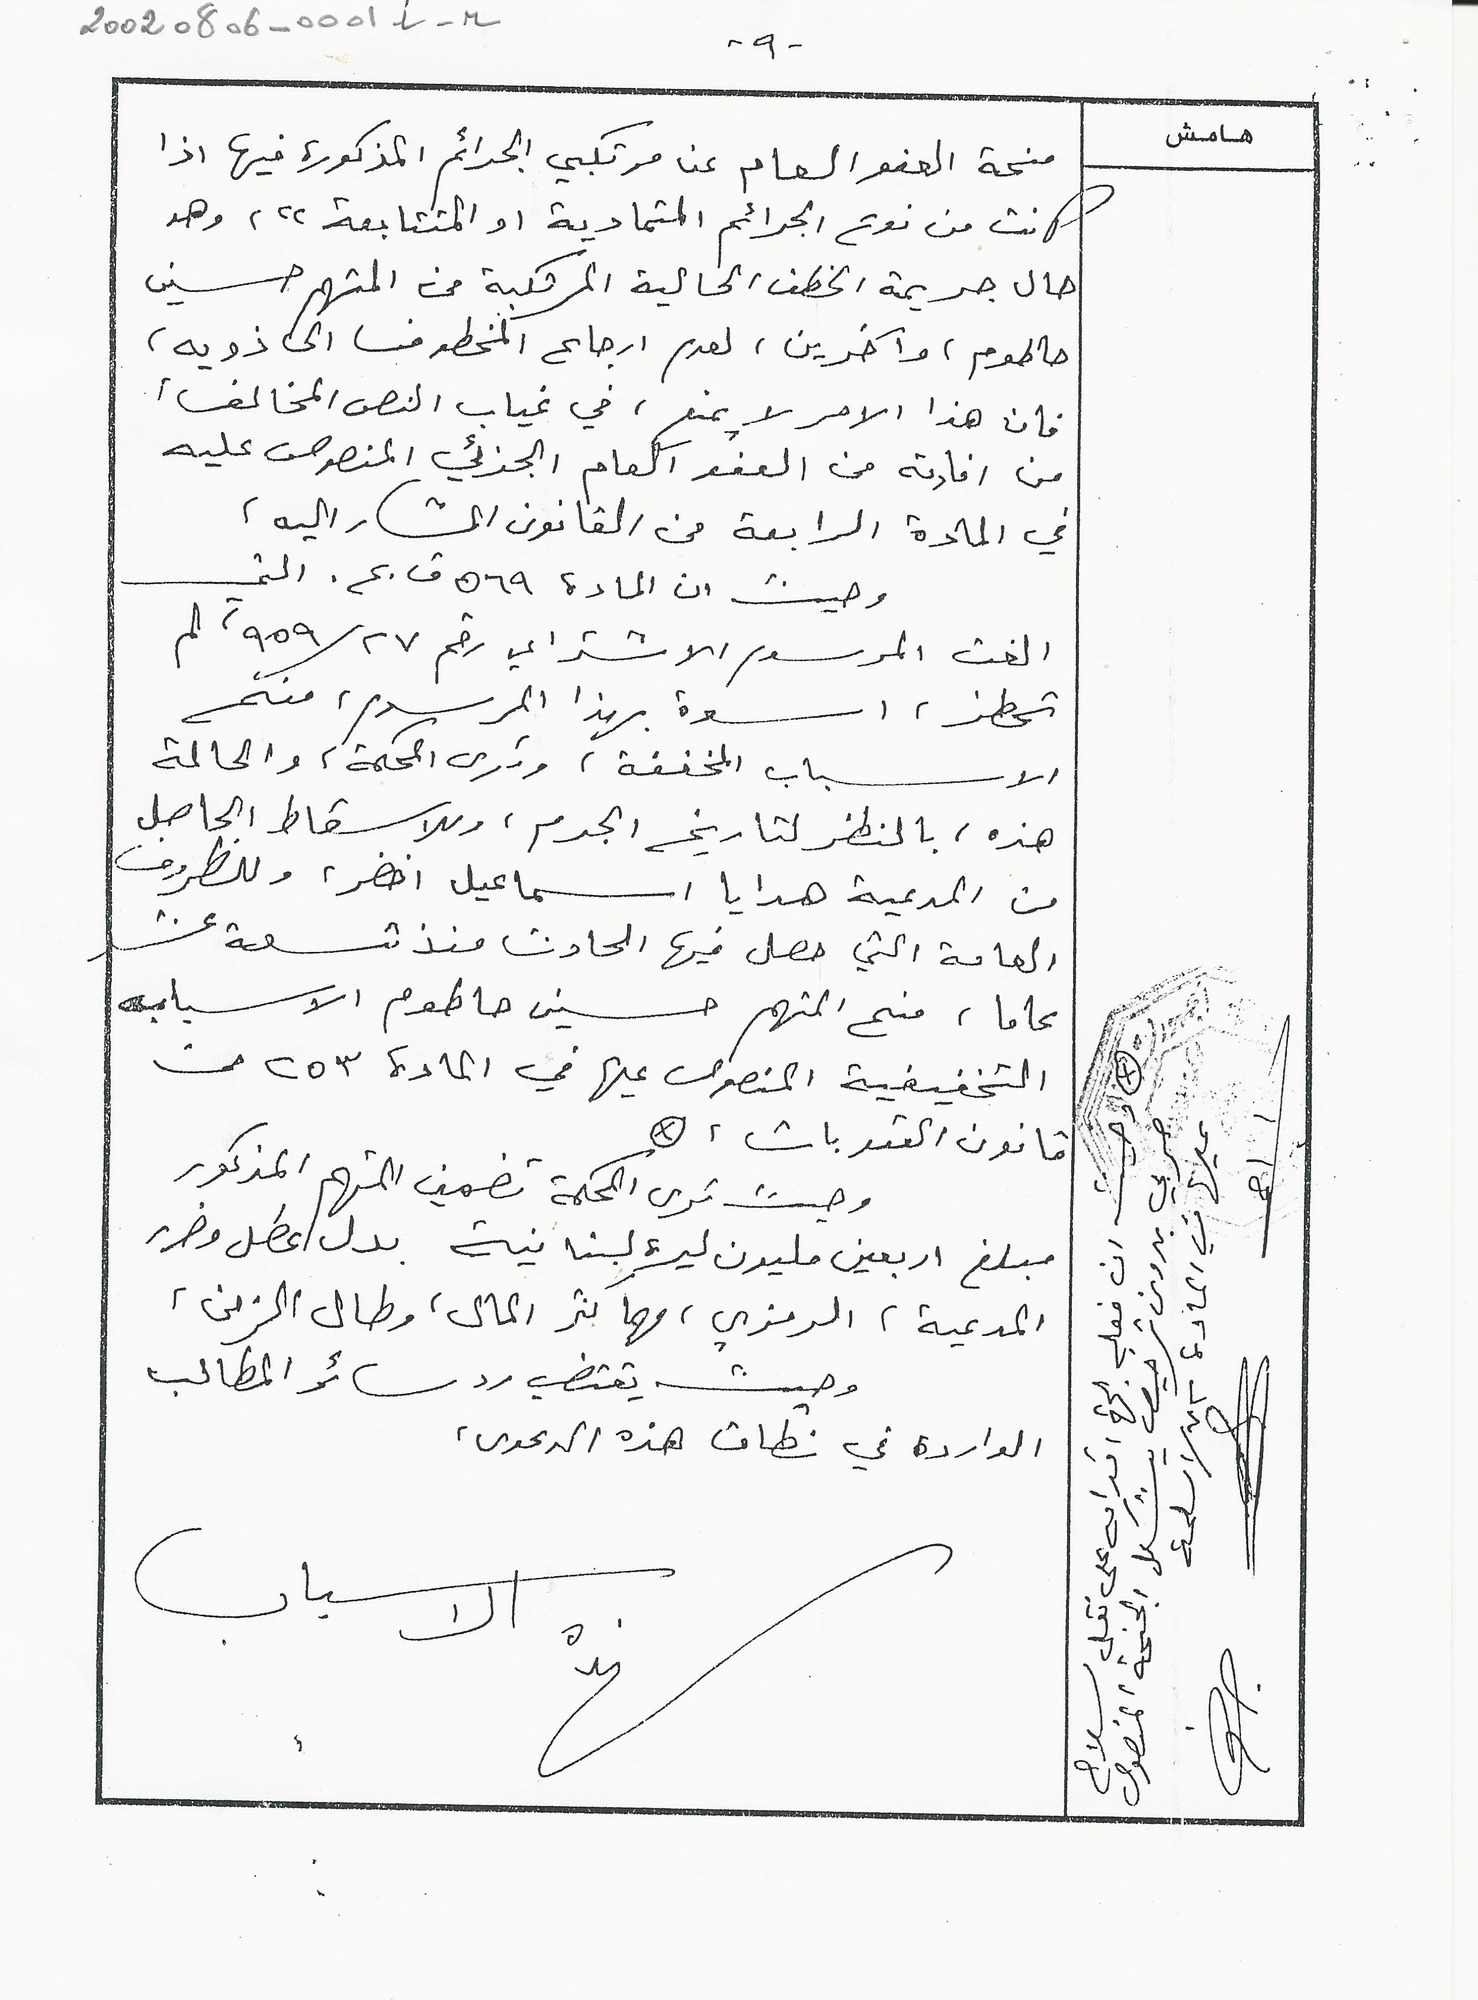 20020806-0001
-٩-
هامش
منحة العفو العام عن مرتكبي الجرائم المذكورة فيها اذا
كانت من نوع الجرائم المتمادية او المتتابعة »، وهو
حال جريمة الخطف الحالية المرتكبة من المتهم حسين
حاطوم، وآخرين، لعدم ارجاع المخطوف الى ذويه،
فان هذا الامر لا يمنع، في غياب النص المخالف،
من افادته من العفو العام الجزئي المنصوص عليه
في المادة الرابعة من القانون المشار اليه،
وحيث ان المادة ٥٦٩ ق.ع. التي
الغت المرسوم الاشتراعي رقم ٢٧/٩٥٩، لم
تحظر، اسوة بهذا المرسوم، منح
الاسباب المخففة، وترى المحكمة، والحالة
هذه، بالنظر لتاريخ الجرم، وللاسقاط الحاصل
من المدعية هدايا اسماعيل اخضر، وللظروف
العامة التي حصل فيها الحادث منذ تسعة عشر
عاما، منح المتهم حسين حاطوم الاسباب
التخفيفية المنصوص عليها في المادة ٢٥٣ من
قانون العقوبات، ⊗
وحيث ترى المحكمة تضمين المتهم المذكور
مبلغ اربعين مليون ليرة لبنانية بدل عطل وضرر
المدعية، الرمزي، مهما كثر المال، وطال الزمن،
وحيث يقتضي رد سائر المطالب
الواردة في نطاق هذه الدعوى،
لهذه الاسباب
⊗ وحيث ان فعله لجهة اقدامه على نقل سلاح
حربي بدون ترخيص يشكل الجنحة المنصوص
عليها في المادة ٧٣ اسلحة